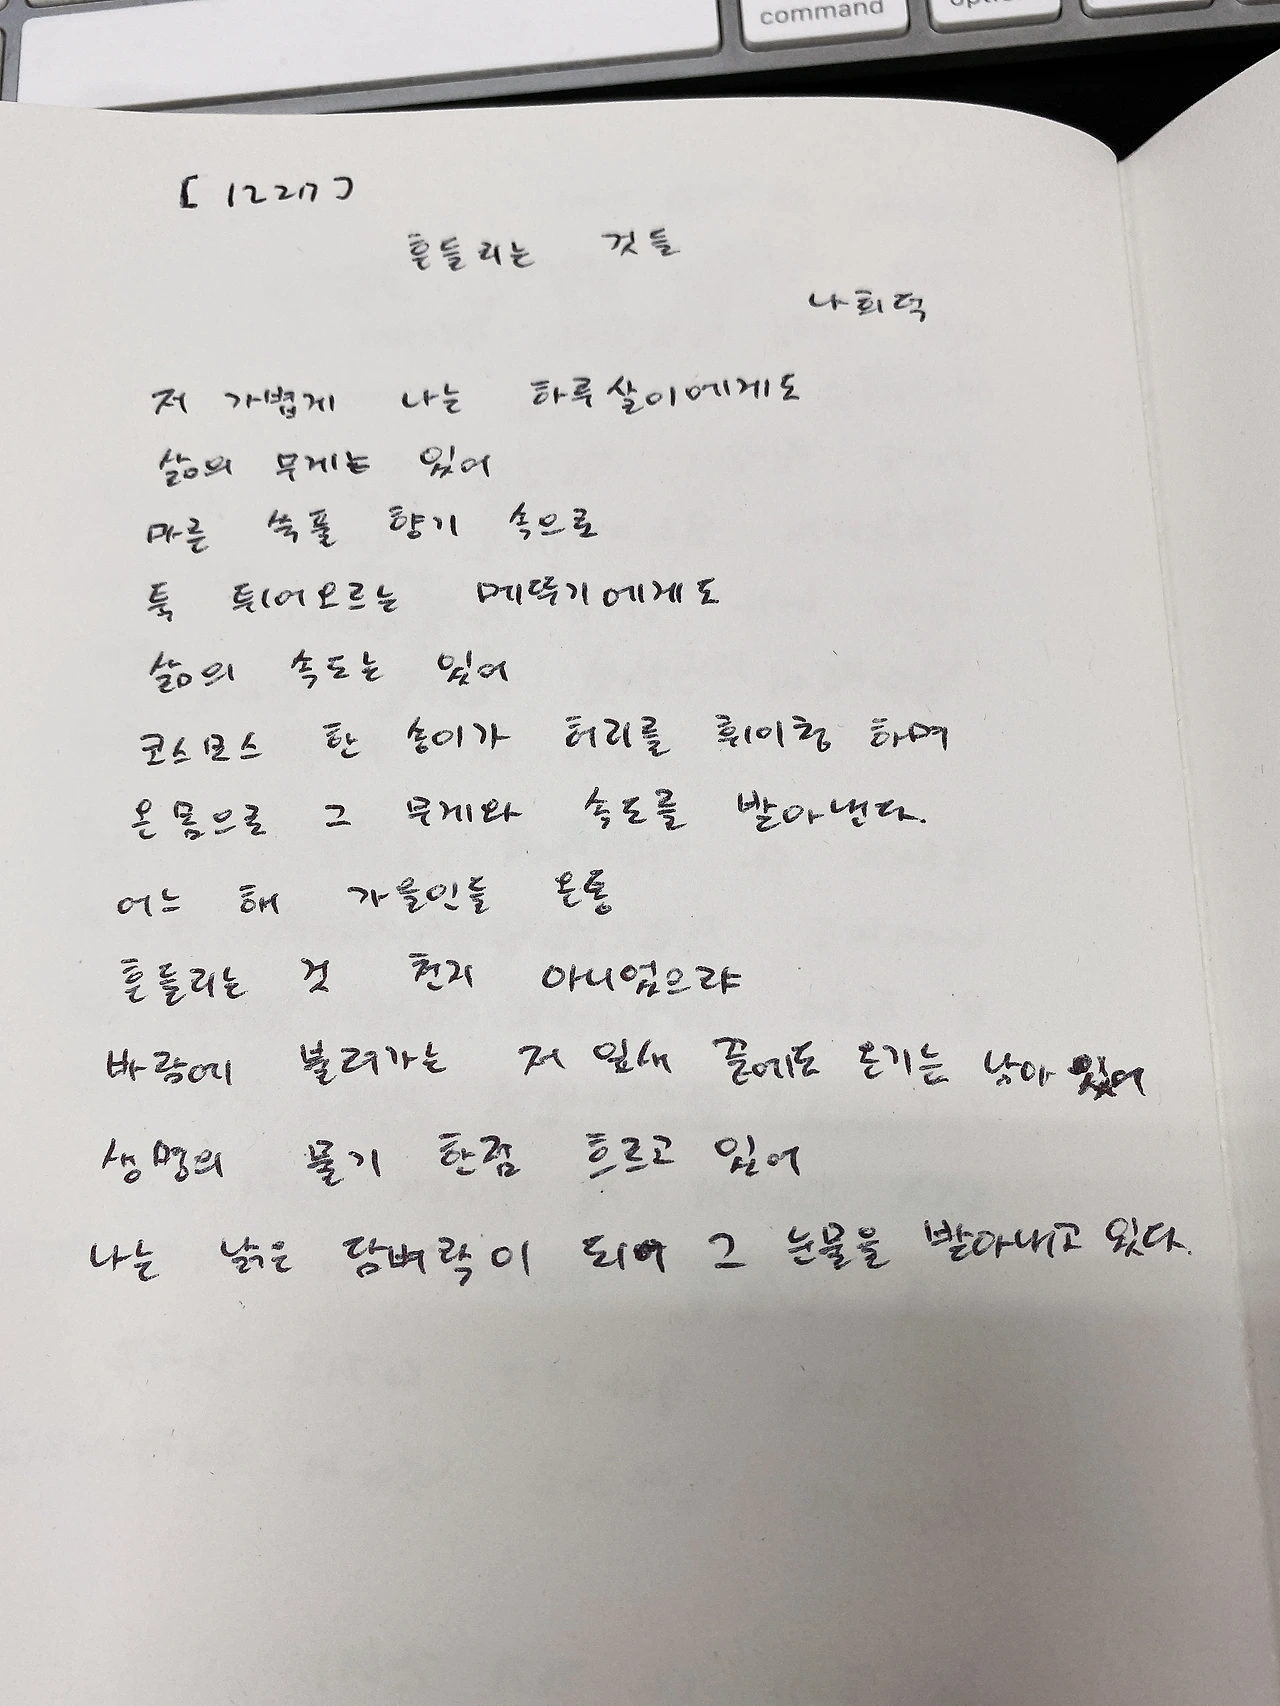 command
[1227]
흔들리는 것들
나희덕
저 가볍게 나는 하루살이에게도
삶의 무게는 있어
마른 쑥풀 향기 속으로
툭 튀어오르는 메뚜기에게도
삶의 속도는 있어
코스모스 한 송이가 허리를 휘이청 하며
온몸으로 그 무게와 속도를 받아낸다.
어느 해 가을인들 온통
흔들리는 것 천지 아니었으랴
바람에 불려가는 저 잎새 끝에도 온기는 남아 있어
생명의 물기 한점 흐르고 있어
나는 낡은 담벼락이 되어 그 눈물을 받아내고 있다.